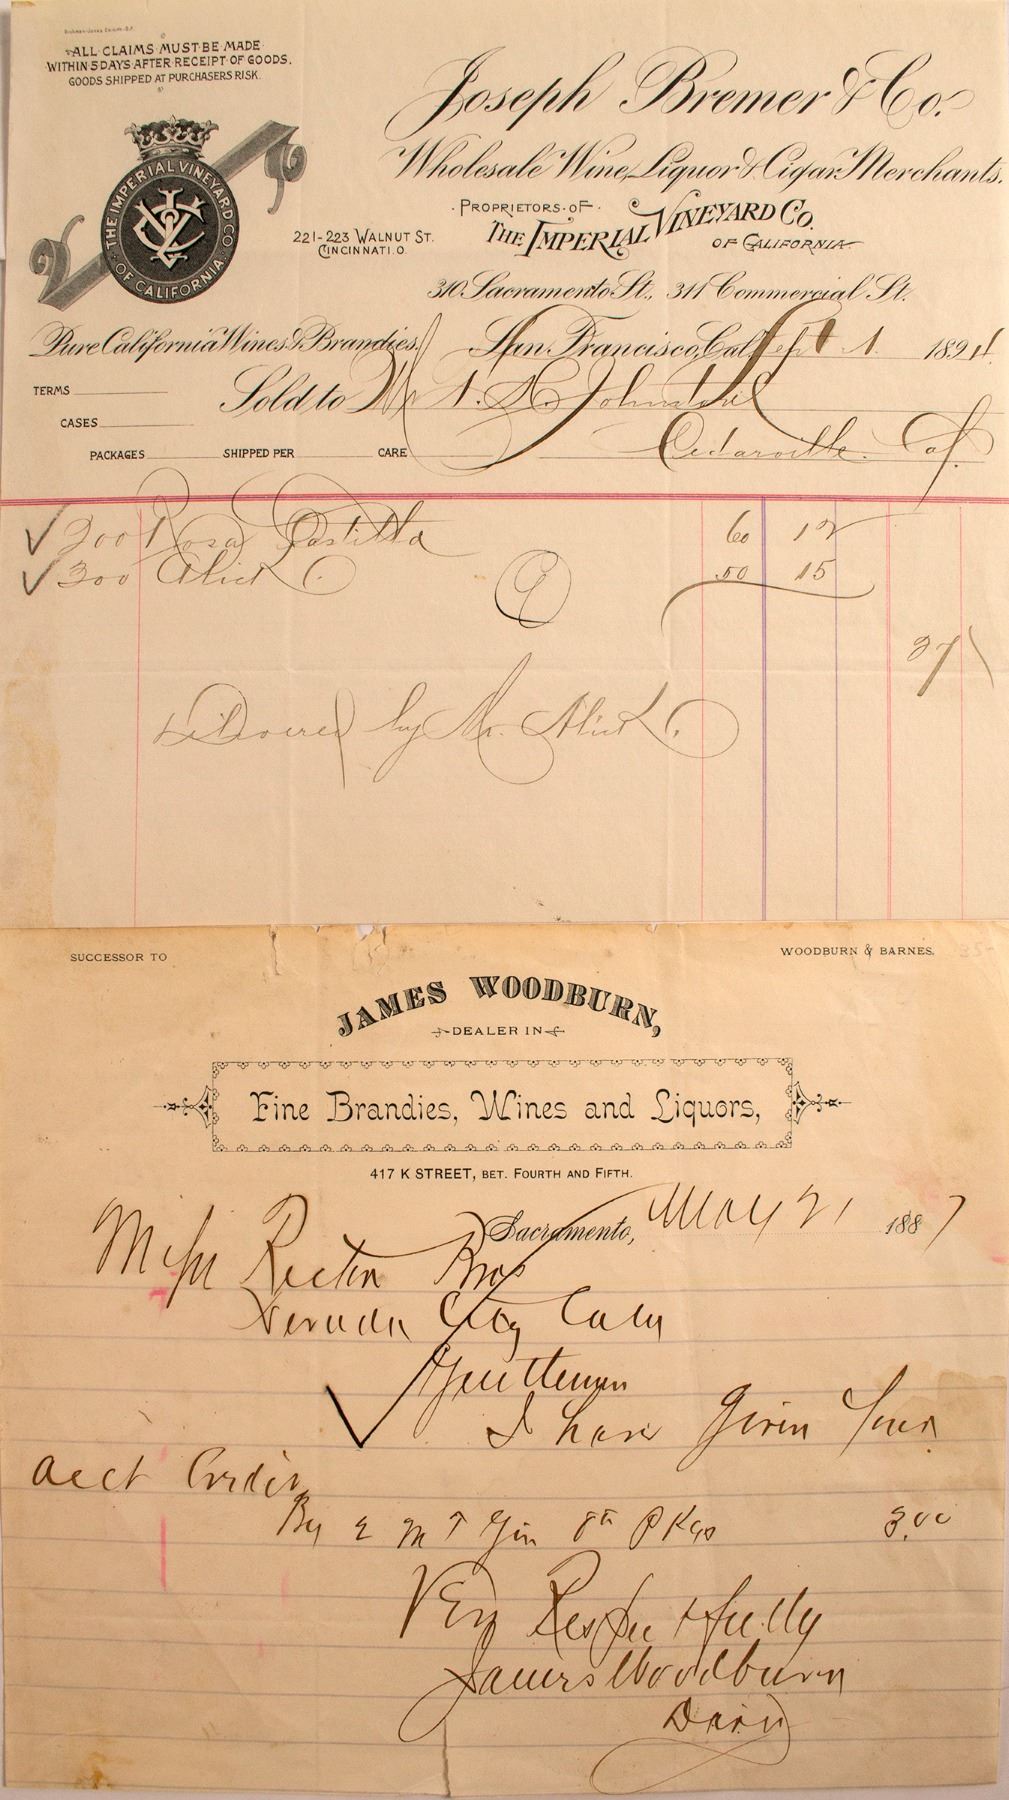 ALL CLAIMS MUST BE MADE
WITHIN 5 DAYS AFTER RECEIPT OF GOODS.
GOODS SHIPPED AT PURCHASERS RISK.
THE IMPERIAL VINEYARD CO.
OF CALIFORNIA
Joseph Bremer & Co.
Wholesale Wine, Liquor & Cigar Merchants.
PROPRIETORS OF
THE IMPERIAL VINEYARD CO.
OF CALIFORNIA
221-223 WALNUT ST.
CINCINNATI. O.
310 Sacramento St., 311 Commercial St.
Pure California Wines & Brandies.
San Francisco, Cal. Sept 1 1894
TERMS
Sold to Mr Johnstone
CASES
Cedarville Cal.
PACKAGES SHIPPED PER CARE
200 Rosa 60 12
300 Alick 50 15
27
Delivered by Mr. Alick.
SUCCESSOR TO WOODBURN & BARNES.
JAMES WOODBURN,
DEALER IN
Fine Brandies, Wines and Liquors,
417 K STREET, BET. FOURTH AND FIFTH.
Sacramento, May 21 1887
Mess Rector Bros
Nevada City Caly
Gentlemen
I have Given Your
acct Credit
By 2 M T Gin Pkgs 3.00
Very Respectfully
James Woodburn